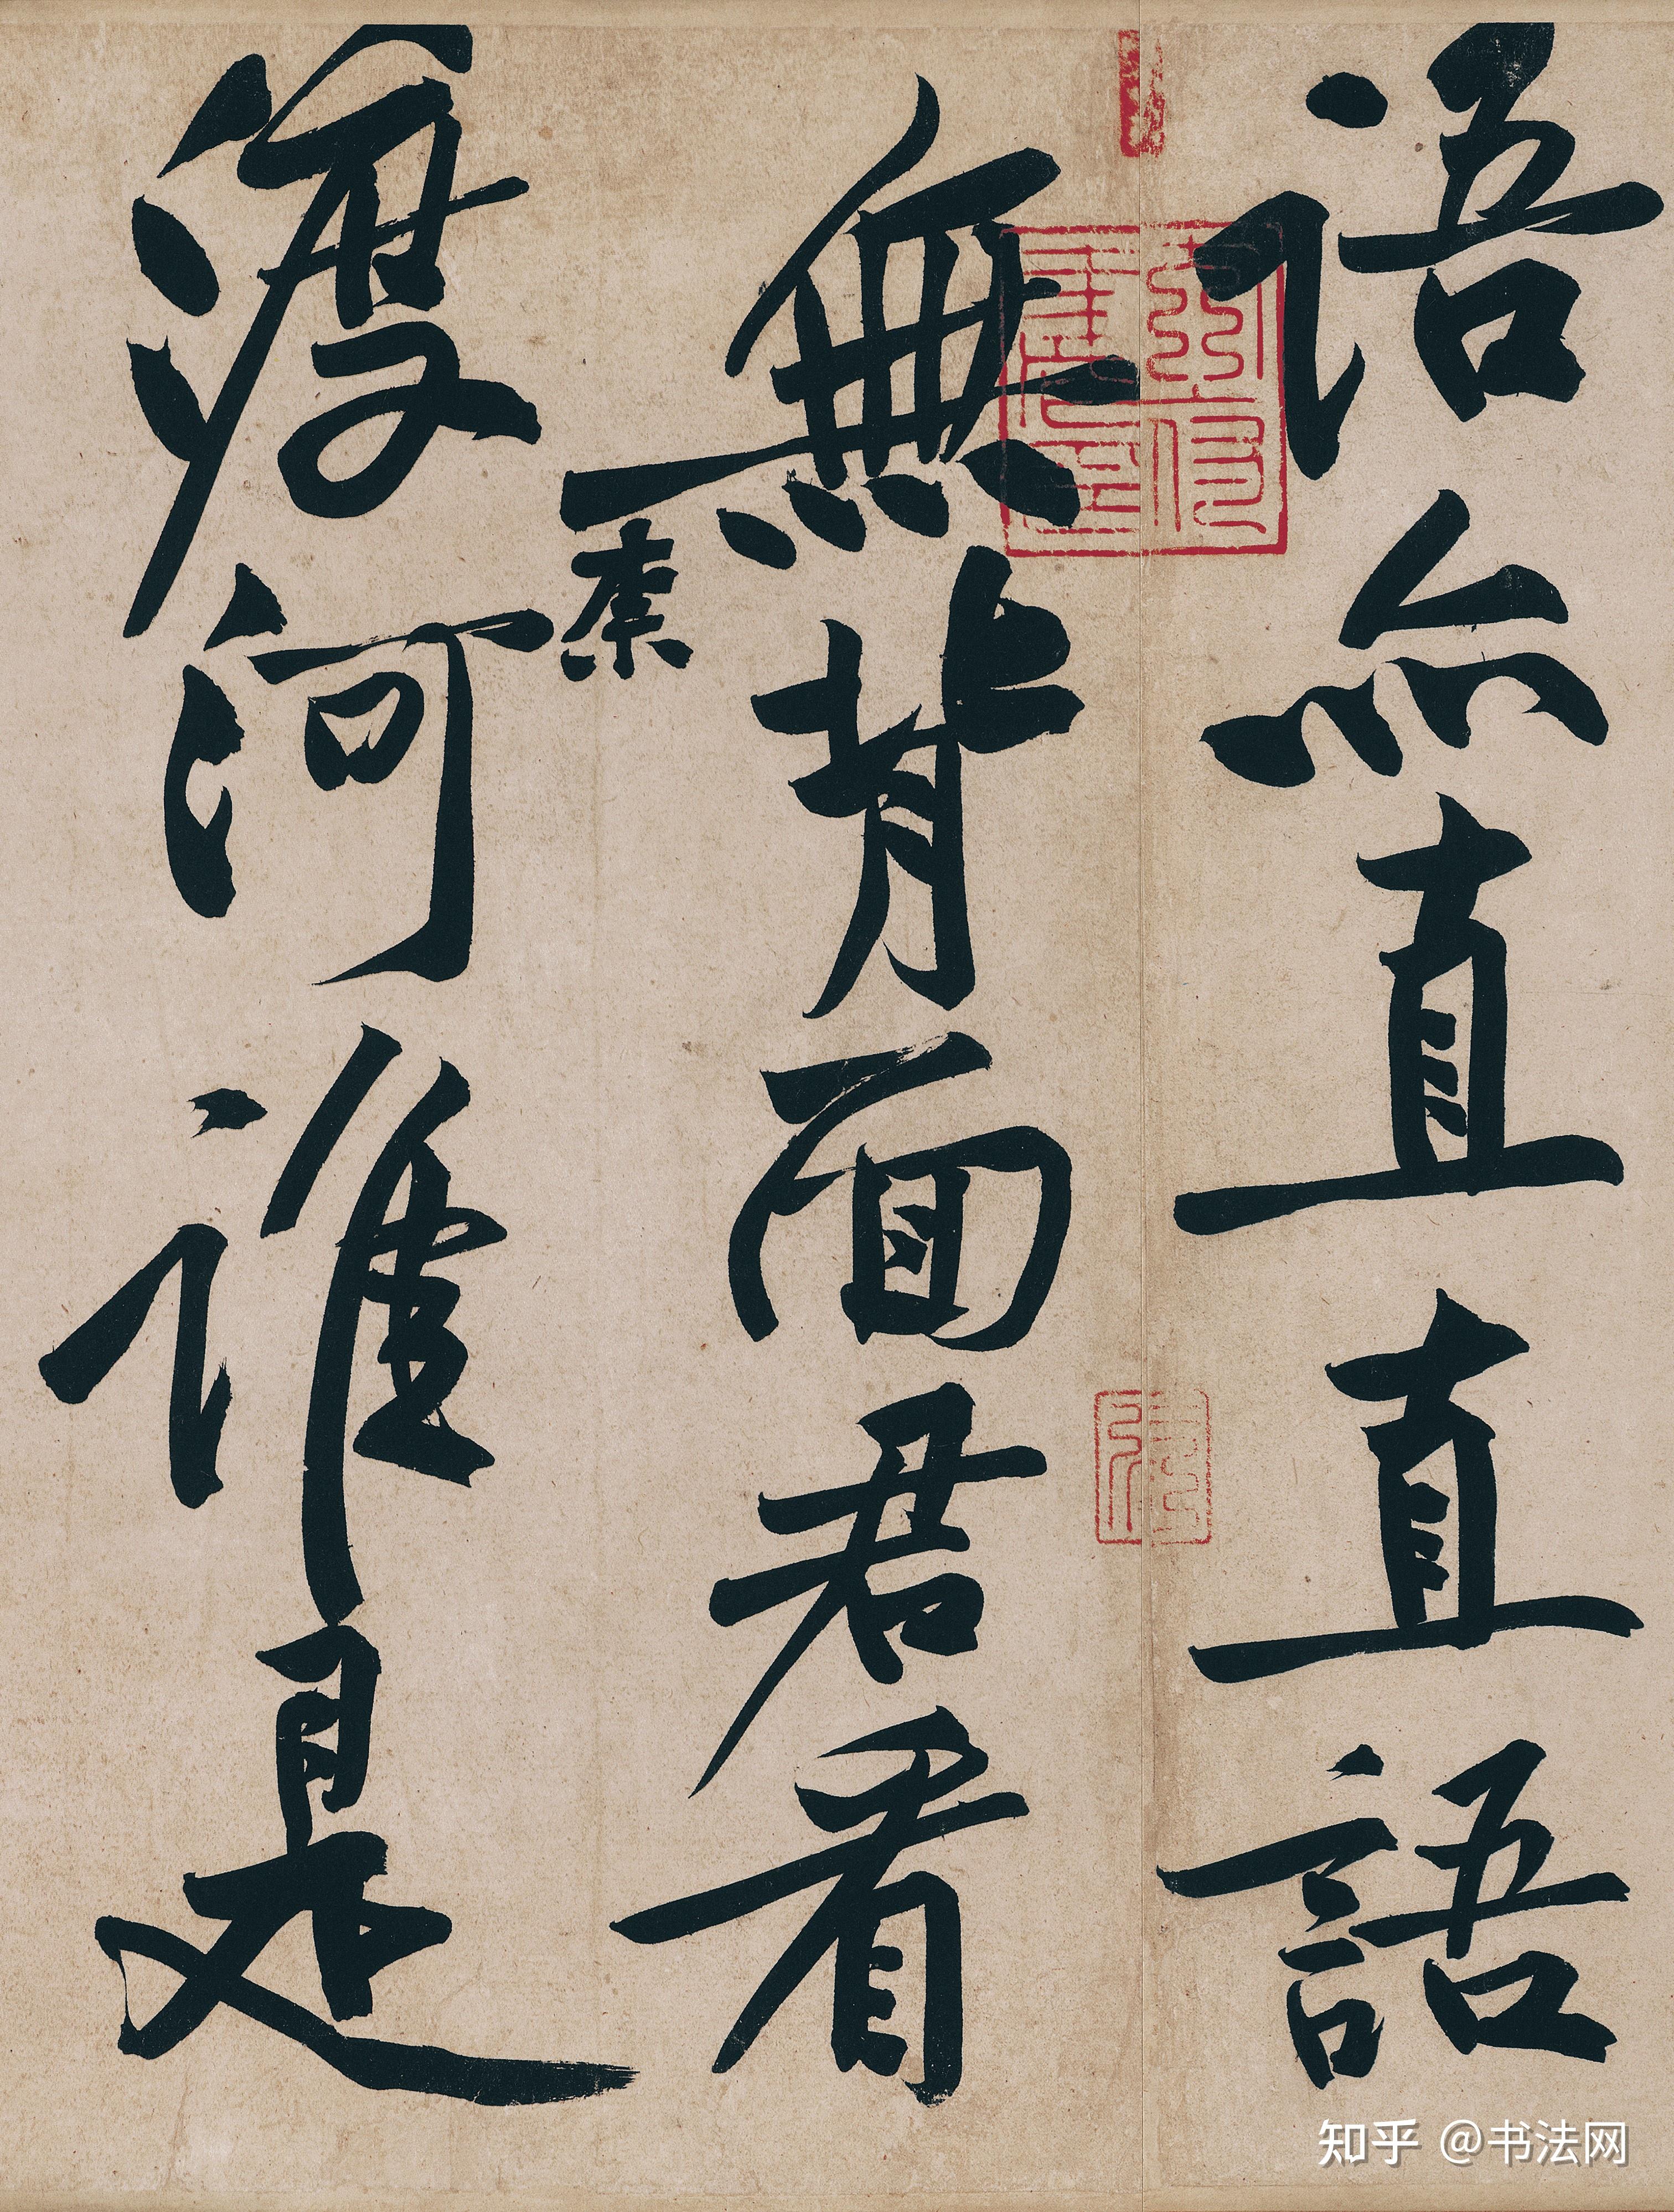 語亦直直語
無背面君看
渡河誰是
知乎 @书法网